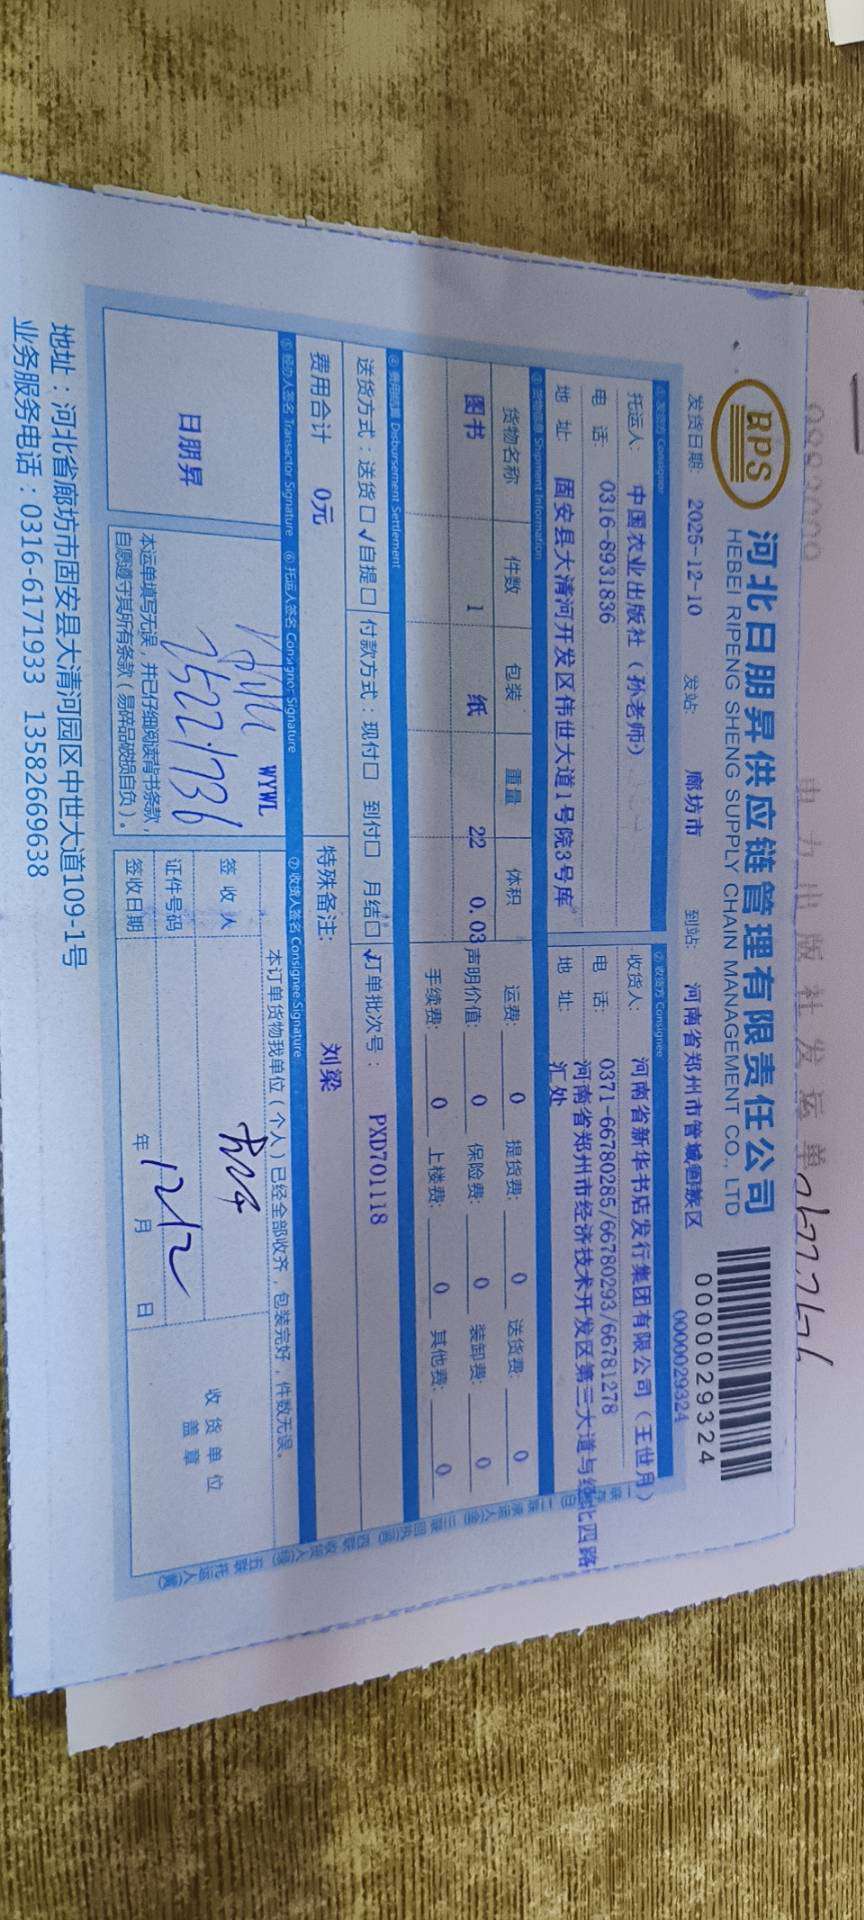 电力出版社发运单
RPS
河北日朋昇供应链管理有限责任公司
HEBEI RIPENG SHENG SUPPLY CHAIN MANAGEMENT CO., LTD
0000029324
0000029324
发货日期: 2025-12-10 发站: 廊坊市 到站: 河南省郑州市管城回族区
①发货方 Consignor ②收货方 Consignee
托运人: 中国农业出版社(孙老师) 收货人: 河南省新华书店发行集团有限公司(王世月)
电 话: 0316-8931836 电 话: 0371-66780285/66780293/66781278
地 址: 固安县大清河开发区伟世大道1号院3号库 地 址: 河南省郑州市经济技术开发区第三大道与经北四路
汇处
③货物信息 Shipment Information
货物名称 件数 包装 重量 体积 运费: 0 提货费: 0 送货费: 0
图书 1 纸 22 0.03 声明价值: 0 保险费: 0 装卸费: 0
手续费: 0 上楼费: 0 其他费: 0
④费用结算 Disbursement Settlement
送货方式:送货☐ ✓自提☐ 付款方式:现付☐ 到付☐ 月结☐ ✓订单批次号: PXD701118
费用合计 0元 特殊备注: 刘梁
⑤经办人签名 Transactor Signature ⑥托运人签名 Consignor Signature ⑦收货人签名 Consignee Signature
日朋昇
WYWL
本运单填写无误,并已仔细阅读背书条款,
自愿遵守其所有条款(易碎品破损自负)。
本订单货物我单位(个人)已经全部收齐,包装完好,件数无误。
签收人
证件号码
签收日期 年 12 月 12 日
收货单位
盖章
一联存根(白) 二联承运人(金) 三联回执(蓝) 四联收货人(绿) 五联托运人(黄)
地址:河北省廊坊市固安县大清河园区中世大道109-1号
业务服务电话:0316-6171933 13582669638